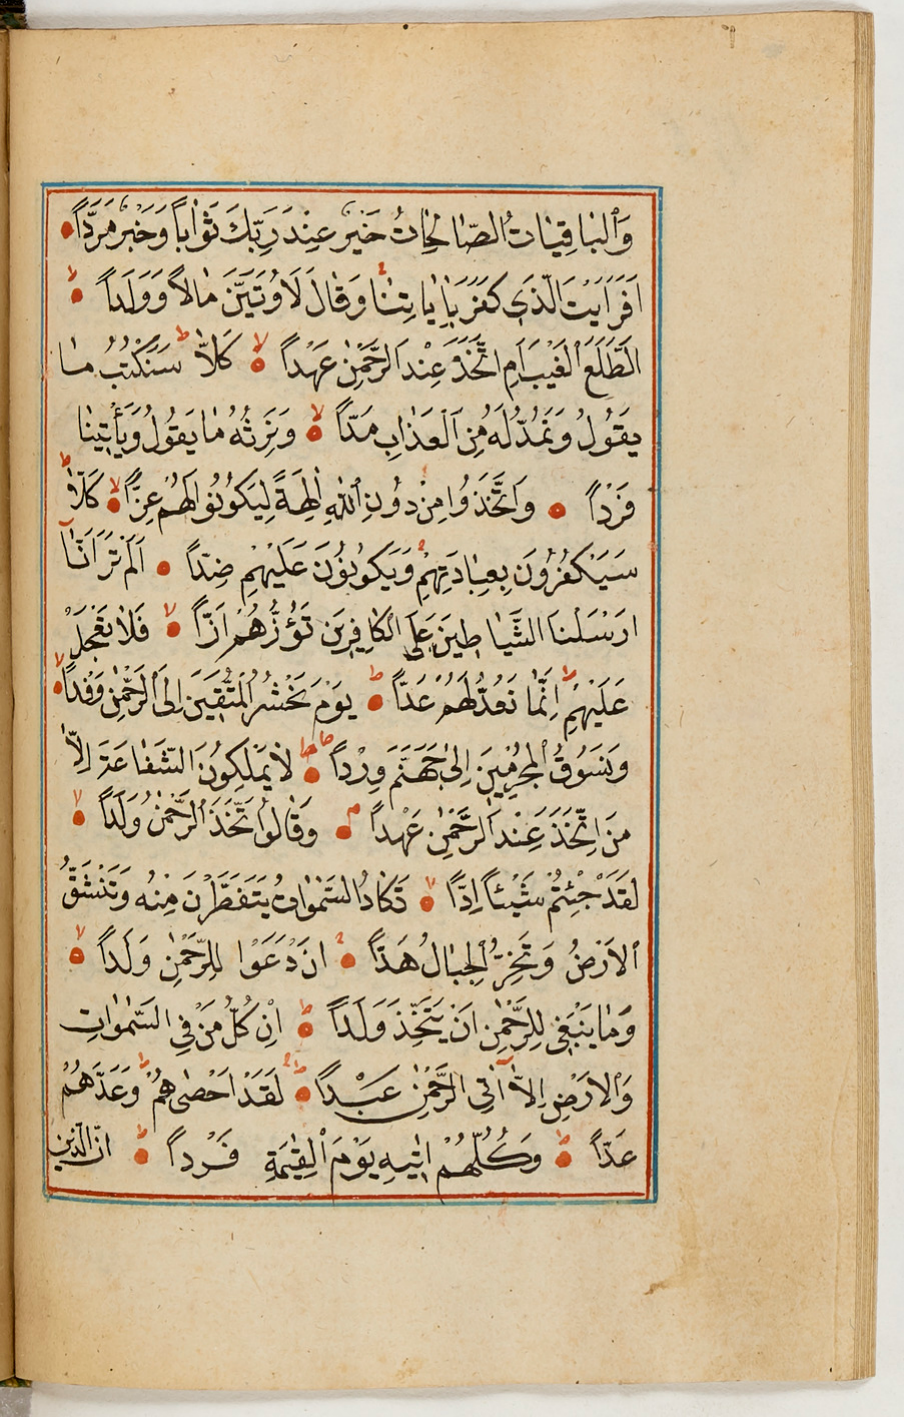 وَالْبَاقِيَاتُ الصَّالِحَاتُ خَيْرٌ عِنْدَ رَبِّكَ ثَوَابًا وَخَيْرٌ مَرَدًّا
اَفَرَاَيْتَ الَّذِي كَفَرَ بِاٰيَاتِنَا وَقَالَ لَاُوتَيَنَّ مَالًا وَوَلَدًا
اَطَّلَعَ الْغَيْبَ اَمِ اتَّخَذَ عِنْدَ الرَّحْمٰنِ عَهْدًا كَلَّا سَنَكْتُبُ مَا
يَقُولُ وَنَمُدُّ لَهُ مِنَ الْعَذَابِ مَدًّا وَنَرِثُهُ مَا يَقُولُ وَيَأْتِينَا
فَرْدًا وَاتَّخَذُوا مِنْ دُونِ اللّٰهِ اٰلِهَةً لِيَكُونُوا لَهُمْ عِزًّا كَلَّا
سَيَكْفُرُونَ بِعِبَادَتِهِمْ وَيَكُونُونَ عَلَيْهِمْ ضِدًّا اَلَمْ تَرَ اَنَّا
اَرْسَلْنَا الشَّيَاطِينَ عَلَى الْكَافِرِينَ تَؤُزُّهُمْ اَزًّا فَلَا تَعْجَلْ
عَلَيْهِمْ اِنَّمَا نَعُدُّ لَهُمْ عَدًّا يَوْمَ نَحْشُرُ الْمُتَّقِينَ اِلَى الرَّحْمٰنِ وَفْدًا
وَنَسُوقُ الْمُجْرِمِينَ اِلٰى جَهَنَّمَ وِرْدًا لَا يَمْلِكُونَ الشَّفَاعَةَ اِلَّا
مَنِ اتَّخَذَ عِنْدَ الرَّحْمٰنِ عَهْدًا وَقَالُوا اتَّخَذَ الرَّحْمٰنُ وَلَدًا
لَقَدْ جِئْتُمْ شَيْئًا اِدًّا تَكَادُ السَّمٰوَاتُ يَتَفَطَّرْنَ مِنْهُ وَتَنْشَقُّ
الْاَرْضُ وَتَخِرُّ الْجِبَالُ هَدًّا اَنْ دَعَوْا لِلرَّحْمٰنِ وَلَدًا
وَمَا يَنْبَغِي لِلرَّحْمٰنِ اَنْ يَتَّخِذَ وَلَدًا اِنْ كُلُّ مَنْ فِي السَّمٰوَاتِ
وَالْاَرْضِ اِلَّا اٰتِي الرَّحْمٰنِ عَبْدًا لَقَدْ اَحْصٰىهُمْ وَعَدَّهُمْ
عَدًّا وَكُلُّهُمْ اٰتِيهِ يَوْمَ الْقِيٰمَةِ فَرْدًا اِنَّ الَّذِينَ